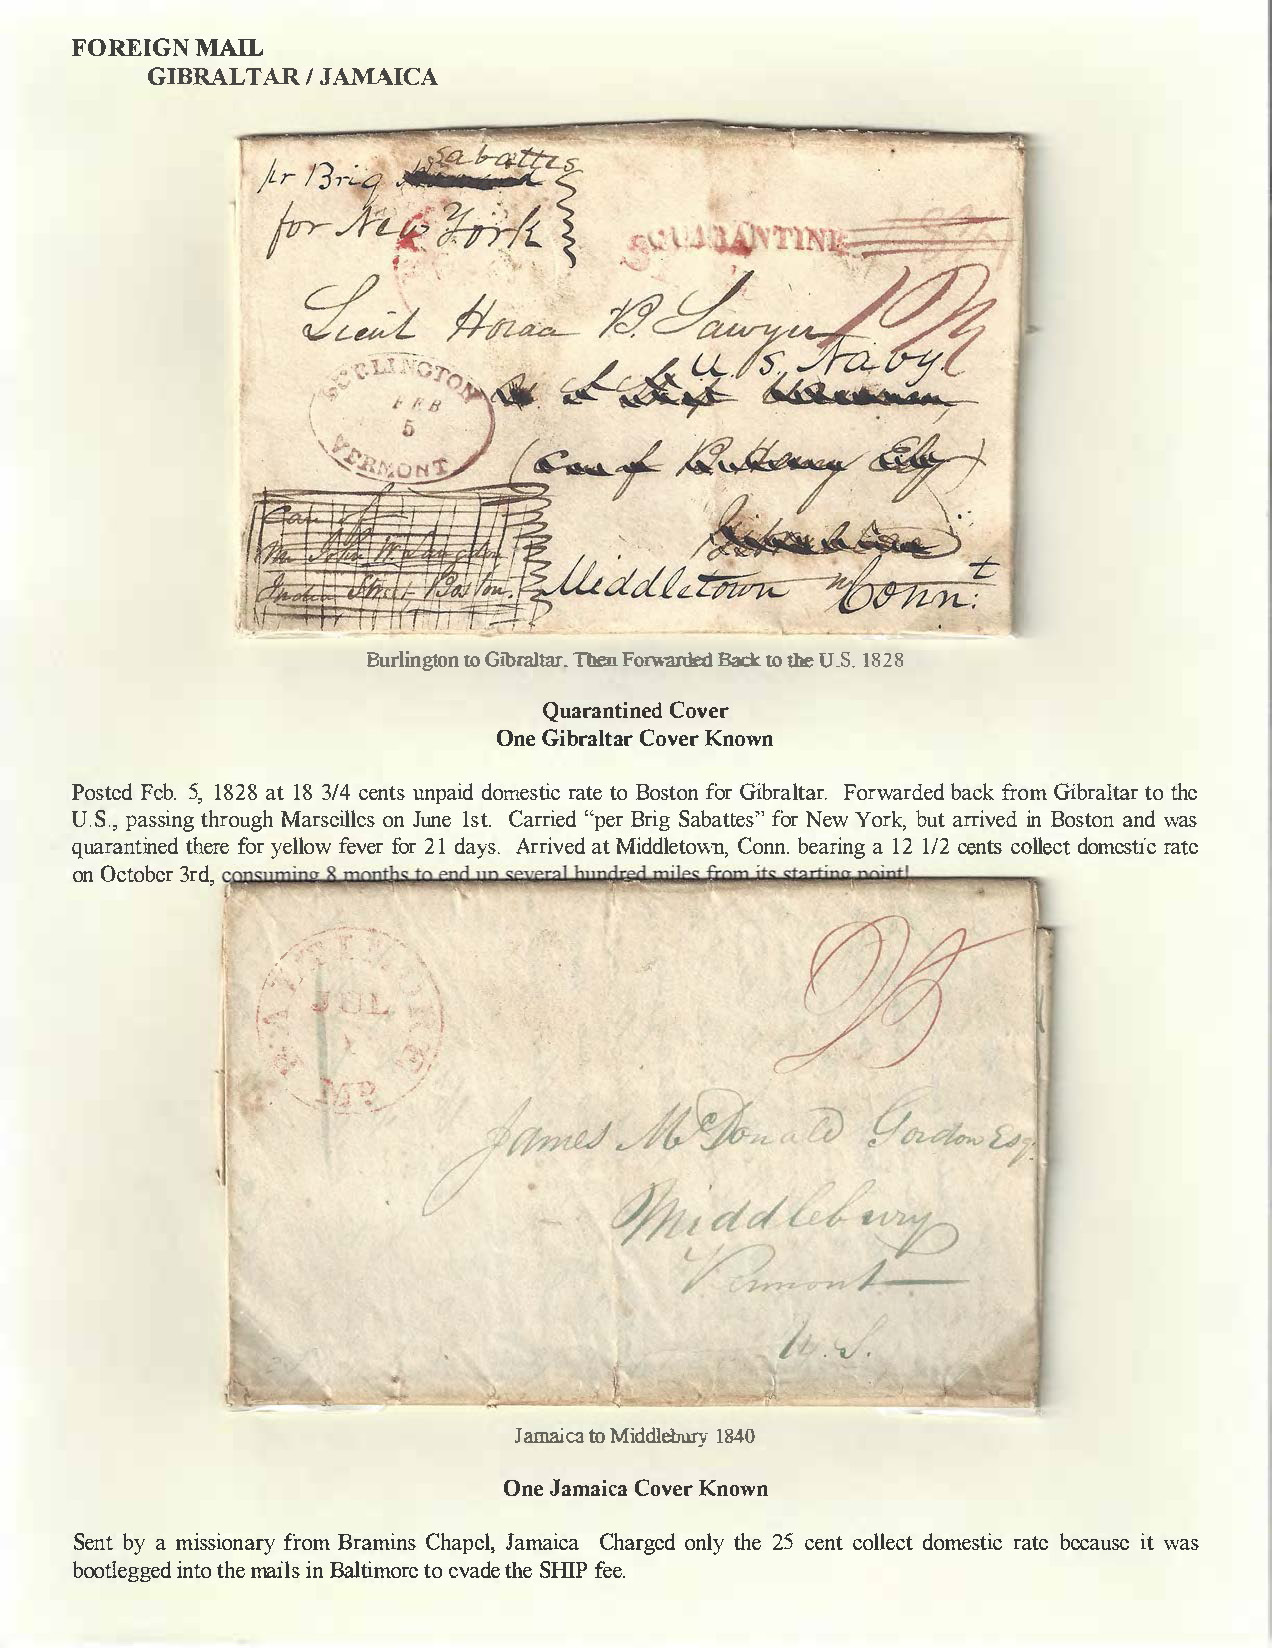 FOREIGN MAIL
GIBRALTAR / JAMAICA
pr Brig Sabattes
for New York
QUARANTINE
Lieut Horace B. Sawyer
U. S. Navy.
BURLINGTON
FEB
5
VERMONT
(Care of
Care of
Mr John W. Langdon
India Street Boston.
Middletown Connt.
Burlington to Gibraltar. Then Forwarded Back to the U.S. 1828
Quarantined Cover
One Gibraltar Cover Known
Posted Feb. 5, 1828 at 18 3/4 cents unpaid domestic rate to Boston for Gibraltar. Forwarded back from Gibraltar to the
U.S., passing through Marseilles on June 1st. Carried “per Brig Sabattes” for New York, but arrived in Boston and was
quarantined there for yellow fever for 21 days. Arrived at Middletown, Conn. bearing a 12 1/2 cents collect domestic rate
on October 3rd, consuming 8 months to end up several hundred miles from its starting point!
BALTIMORE
JUL
MD
25
James McDonald Gordon Esq.
Middlebury
Vermont
U.S.
Jamaica to Middlebury 1840
One Jamaica Cover Known
Sent by a missionary from Bramins Chapel, Jamaica Charged only the 25 cent collect domestic rate because it was
bootlegged into the mails in Baltimore to evade the SHIP fee.